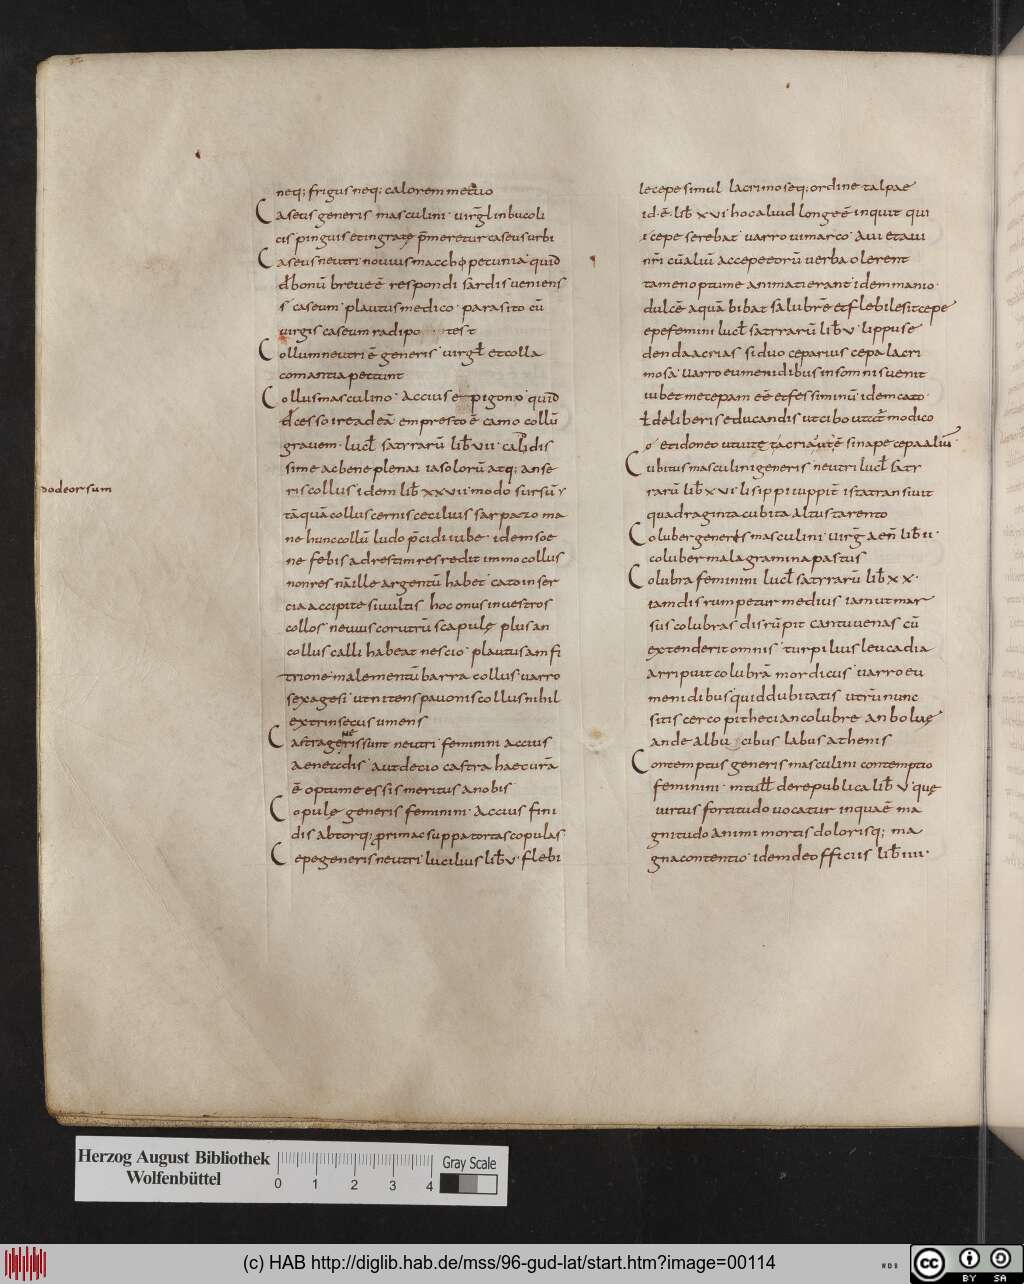 neq; frigus neq; calorem metuo
Caseus generis masculini· uirgl in bucoli
cis pinguis et ingrate p̄meretur caseus urbi
Caseus neutri nouius maccho petunia· quid
d̄ bonū breue ē respondi sardis ueniens
s caseum· plautus medico· parasito cū
uirgis caseum radi po test
Collum neutri ē generis· uirgł et colla
comantia pectunt
Collus masculino· Accius epigono· quid
cesso ire ad eā em presto ē camo collū
grauem· lucł satyrarū lib̄ VII· calidis
sime ac bene plena iasolorū atq; anse
ris collus idem lib̄ XXVII· modo sursū
podeorsum
tāquā collus cernis cecilius
ne hunc collū ludo p̄cidi iube· idem soe
ne febis ad restim res redit immo collus
non res nā ille argentū habet· cato in ser
cia accipite si uultis hoc onus in uestros
collos· neuius corutrū scapulę plus an
collus calli habeat nescio· plautus amfi
trione· malementū barra collus uarro
sexagesi· ut nitens pauonis collus nihil
extrinsecus umens
Castra generis sunt neutri· feminini accius
aeneadis· aut decio castra haec urā
ē optume essis meritus a nobis
Copulę generis feminini· Accius fini
dis abtorq; prima suppa tortas copulas
Cepe generis neutri lucilius lib̄ V· flebi
le cepe simul lacrimoseq; ordine talpae
id ē lib̄ XVI hoc aliud longe ē inquit qui
cepe serebat· uarro uimarco· Aui et aui
nr̄i cū aliū ac cepe eorū uerba olerent
tamen optume animati erant· idem manio·
dulcē aquā bibat salubrē et flebile sit cepe
epe femini lucł satyrarū lib̄ V· lippuse
denda acrias si duo ceparius cepa lacri
mosa· uarro eumenidibus in somnis uenit
iubet me cepam eē et fessiminū idem cato
ł de liberis educandis ut cibo utat modico
o et idoneo utuite ea acria uitē sinape cepa aliū·
Cubitus masculini generis neutri lucł satr
rarū lib̄ XVI lisippi iuppit ista transiuit
quadraginta cubita altus tarento
Coluber generis masculini· uirg̅ aen̄ lib̄ II·
coluber mala gramina pastus
Colubra feminini lucł satyrarū lib̄ XX·
iam disrumpetur medius iam ut mar
sus colubras disrūpit cantu uenas cū
extenderit omnis· turpilius leucadia
arripuit colubrā mordicus· uarro eu
menidibus quid dubitatis utrū nunc
sitis cercopitheci an colubre an boluę
an de albucibus labus athenis
Contemptus generis masculini contemptio
feminini· m tułł de republica lib̄ V· quę
uirtus fortitudo uocatur in qua ē ma
gnitudo animi mortis dolorisq; ma
gna contentio· idem de officiis lib̄ IIII·
Herzog August Bibliothek
Wolfenbüttel
0 1 2 3 4
Gray Scale
(c) HAB http://diglib.hab.de/mss/96-gud-lat/start.htm?image=00114
WDB
cc
BY SA